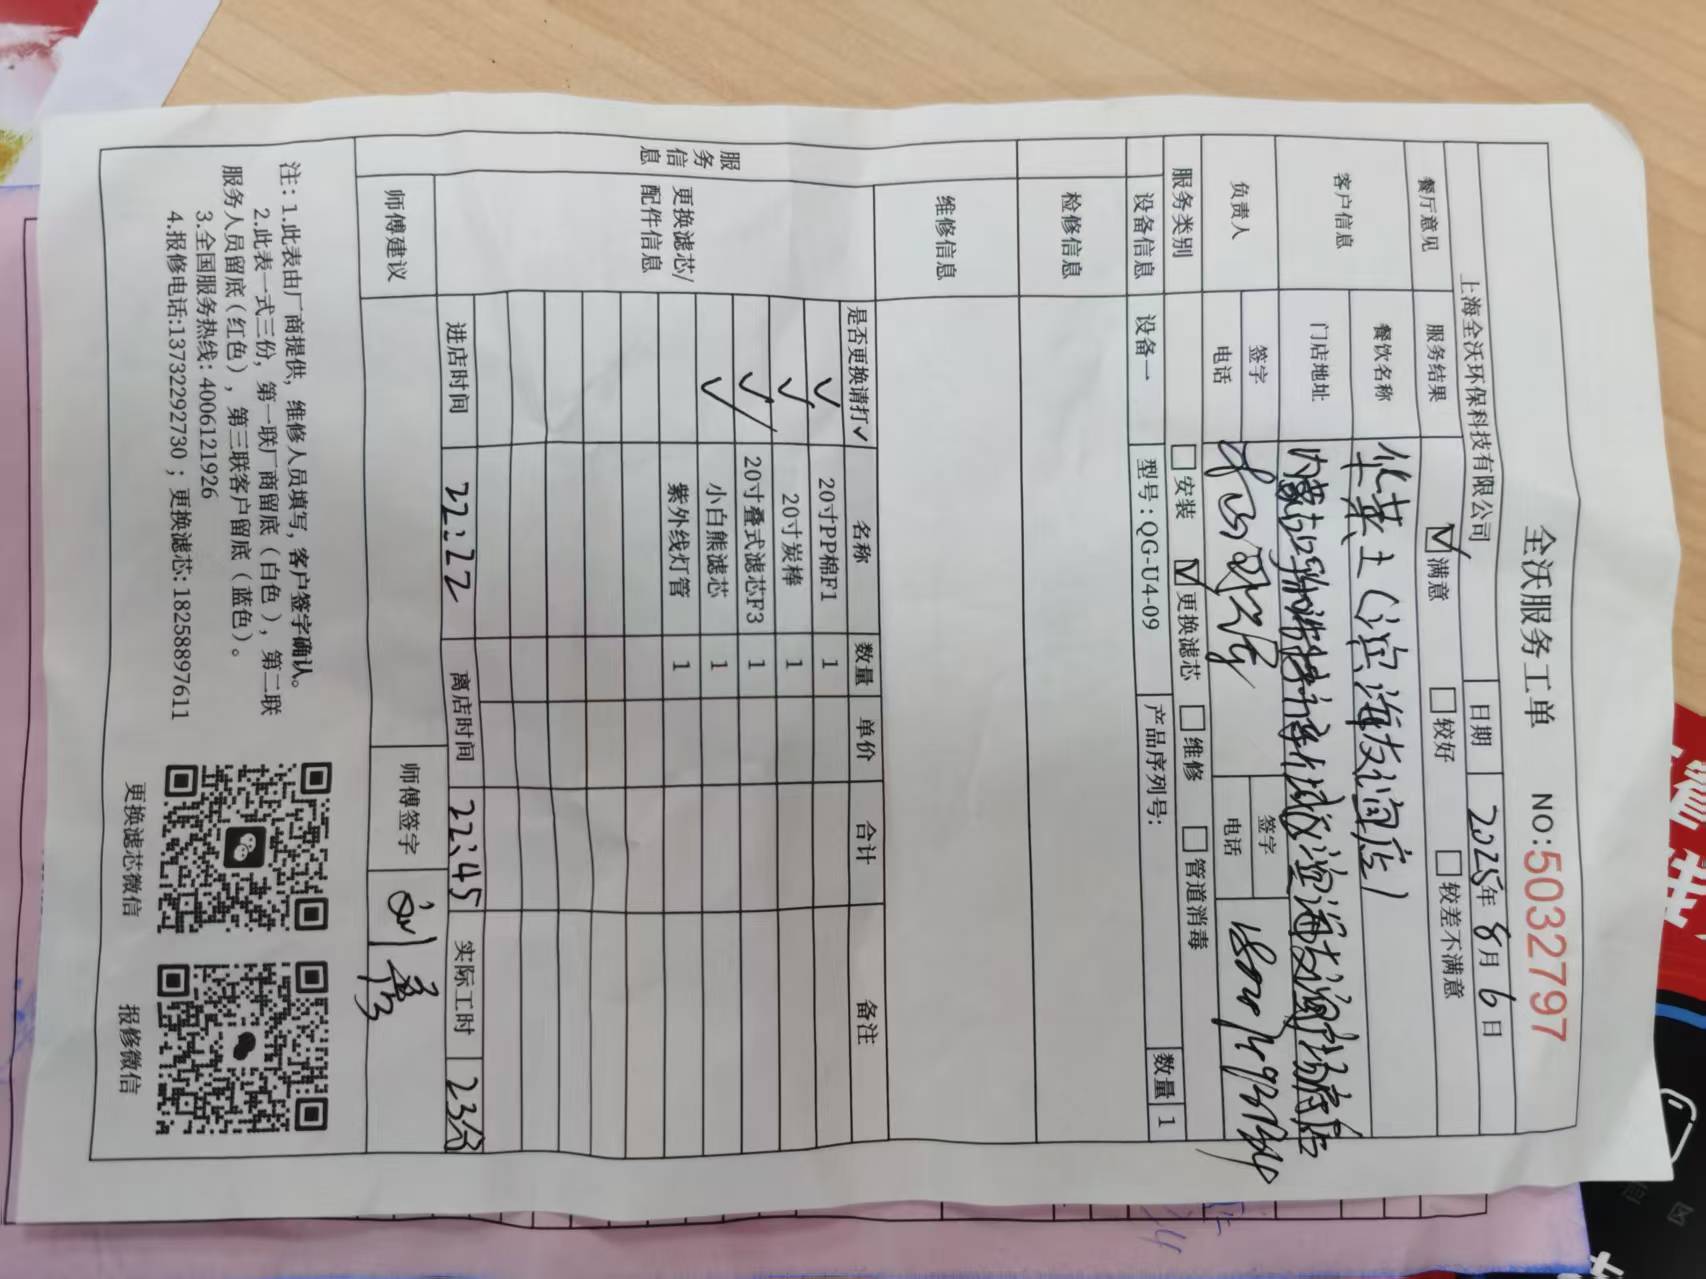 全沃服务工单 NO:50327977
上海全沃环保科技有限公司 日期 2025年 8月 6日
餐厅意见 服务结果 ☑满意 □较好 □较差不满意
客户信息 餐饮名称 华莱士(滨海友润店)
门店地址
负责人 签字 签字
电话 电话
服务类别 □安装 ☑更换滤芯 □维修 □管道消毒
设备信息 设备一 型号:QG-U4-09 产品序列号: 数量 1
检修信息
维修信息
服务信息
更换滤芯/配件信息
是否更换请打✓ 名称 数量 单价 合计 备注
✓ 20寸PP棉F1 1
✓ 20寸炭棒 1
✓ 20寸叠式滤芯F3 1
✓ 小白熊滤芯 1
紫外线灯管 1
进店时间 22:22 离店时间 22:45 实际工时 23分
师傅建议 师傅签字
注:1.此表由厂商提供,维修人员填写,客户签字确认。
2.此表一式三份,第一联厂商留底(白色),第二联
服务人员留底(红色),第三联客户留底(蓝色)。
3.全国服务热线:4006121926
4.报修电话:13732292730;更换滤芯:18258897611
更换滤芯微信 报修微信